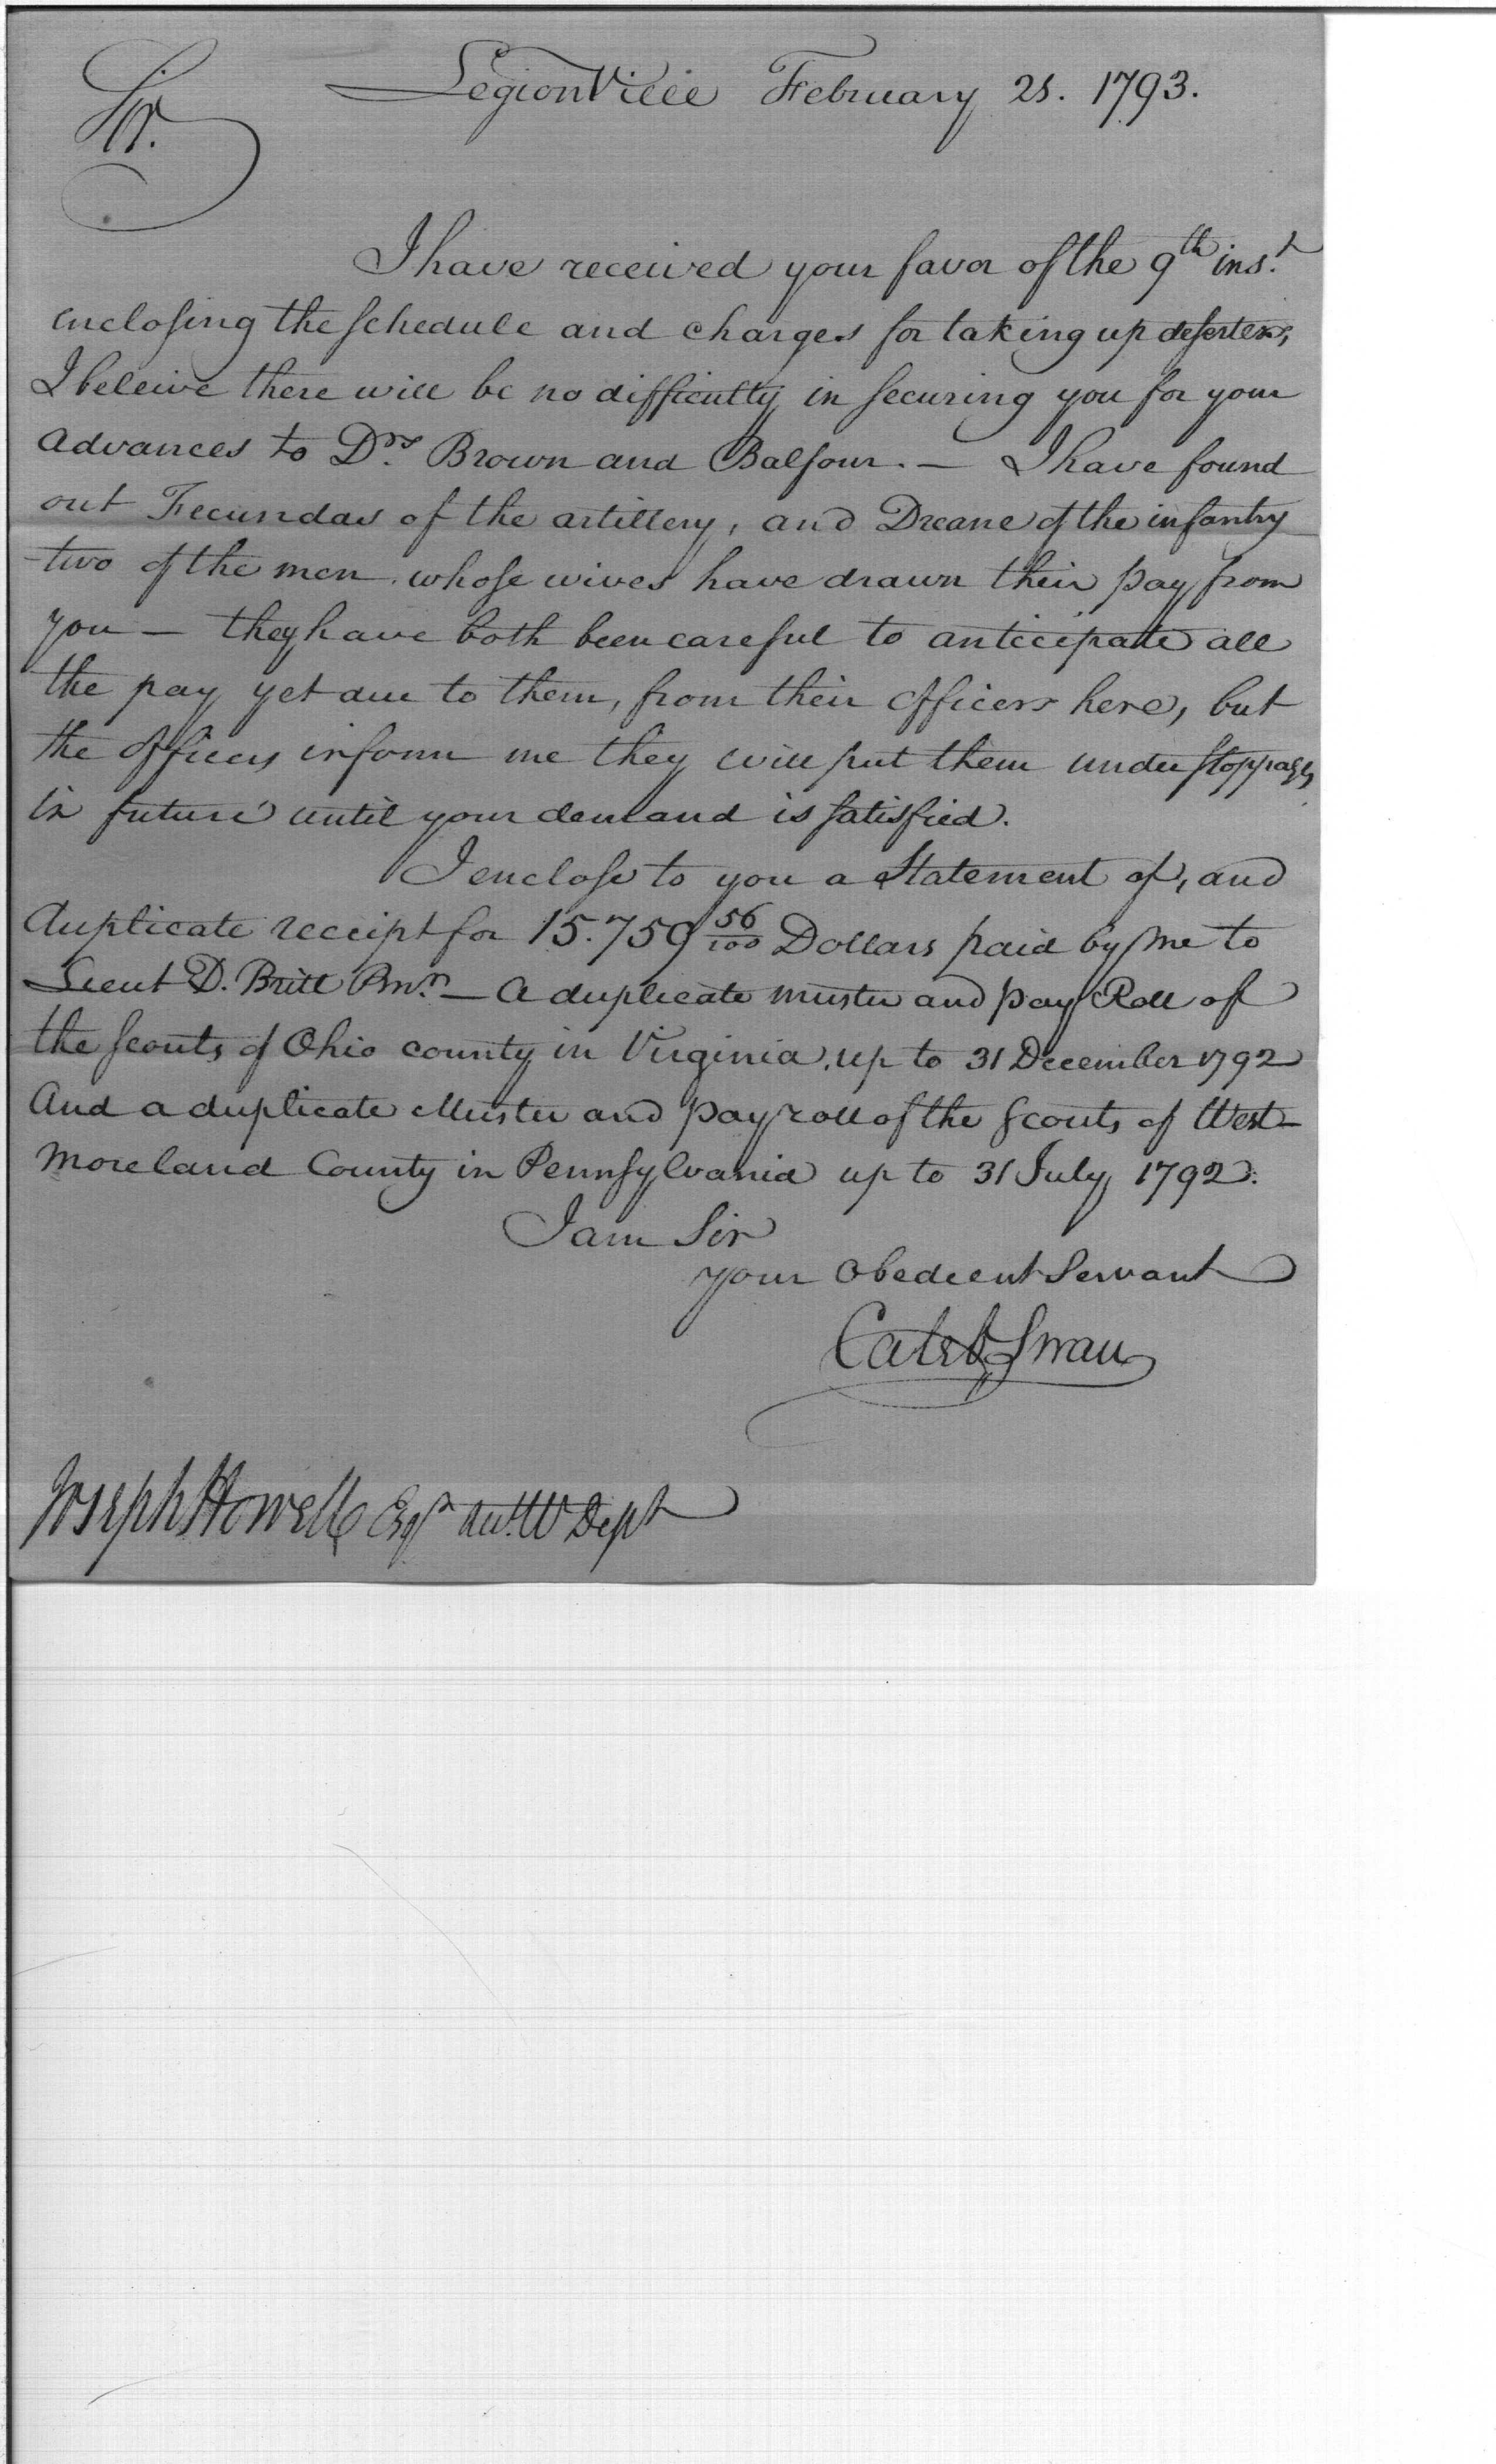 Sir.
LegionVille February 25. 1793.
I have received your favor of the 9th inst.
enclosing the schedule and charges for taking up deserters,
I beleive there will be no difficulty in securing you for your
advances to Drs. Brown and Balfour. — I have found
out Fecundas of the artillery, and Dreane of the infantry
two of the men whose wives have drawn their pay from
you — they have both been careful to anticipate all
the pay yet due to them, from their officers here, but
the officers inform me they will put them under stoppages
in future until your demand is satisfied.
I enclose to you a Statement of, and
duplicate receipt for 15.759 56/100 Dollars paid by me to
Lieut D. Britt — a duplicate muster and pay Roll of
the scouts of Ohio county in Virginia, up to 31 December 1792
And a duplicate Muster and pay roll of the scouts of West-
moreland County in Pennsylvania up to 31 July 1792.
I am Sir
your obedient Servant
Caleb Swan
Joseph Howell Esqr W Dept